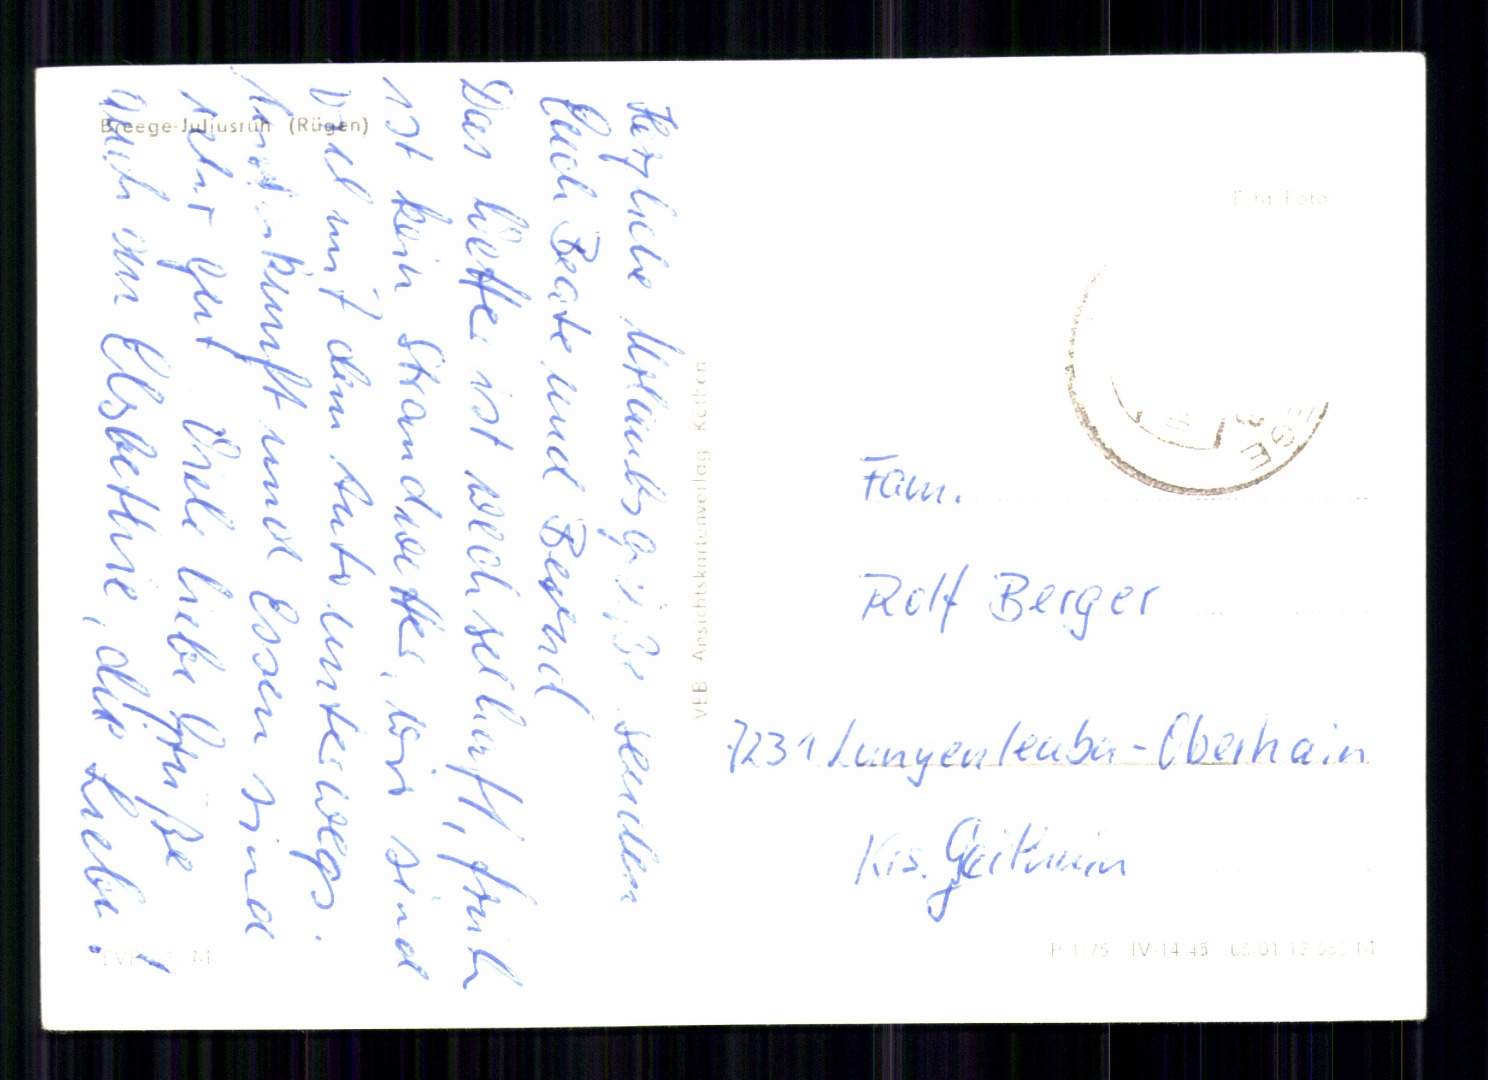 Breege-Juliusruh (Rügen)
Herzliche Urlaubsgrüße senden
Euch Beate und Bernd
Das Wetter ist wechselhaft, früh
ist kein Strandwetter, wir sind
viel mit dem Auto unterwegs.
Unterkunft und Essen sind
sehr gut. Viele liebe Grüße
auch an Elsbethie, die Liebe!
VEB Ansichtskartenverlag Köthen
Echt Foto
Fam.
Rolf Berger
7231 Langenleuba-Oberhain
Krs. Geithain
IV-14-45
M